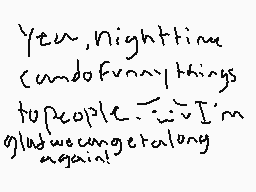 Yea, nighttime
can do funny things
to people. I'm
glad we can get along
again!